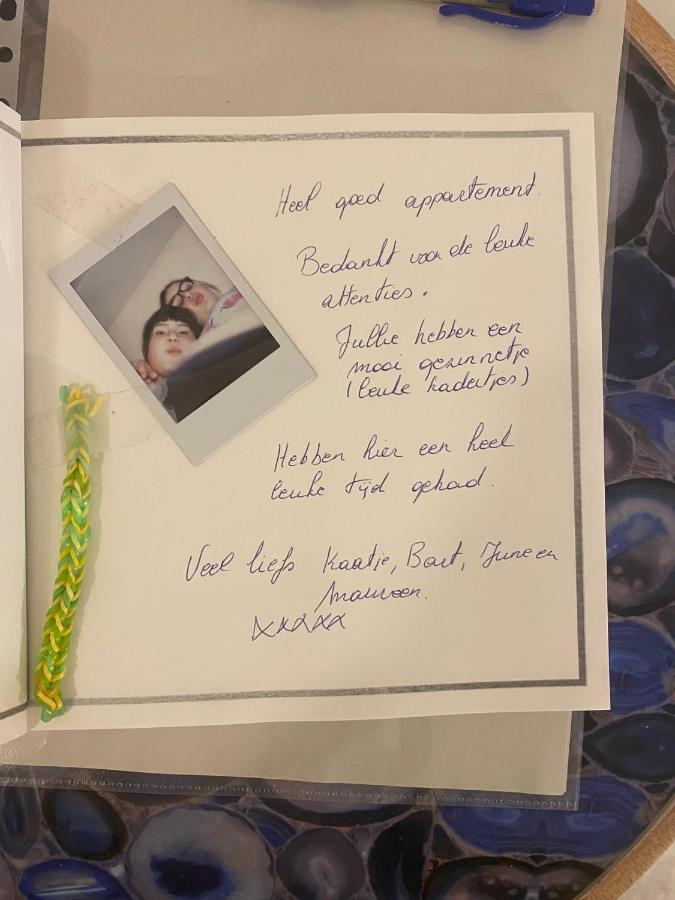 Heel goed appartement.
Bedankt voor de leuke
attenties.
Jullie hebben een
mooi gezinnetje
(leuke kadertjes)
Hebben hier een heel
leuke tijd gehad.
Veel liefs Kaatje, Bart, June en
Maureen.
xxxxx